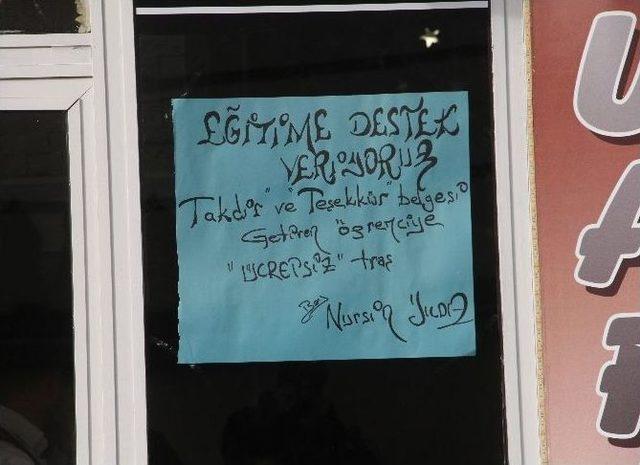 EĞİTİME DESTEK
VERİYORUZ
"Takdir" ve "Teşekkür" belgesi
Getiren öğrenciye
"ÜCRETSİZ" traş
Nursin YILDIZ